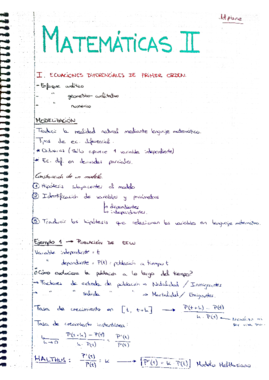 MATEMÁTICAS II
I. ECUACIONES DIFERENCIALES DE PRIMER ORDEN
- Enfoque analítico
" geométrico cualitativo
" numérico
MODELIZACIÓN
Traducir la realidad natural mediante lenguaje matemático.
Tipos de ec. diferencial
* Ordinarias (Sólo aparece 1 variable independiente)
* Ec. dif. en derivadas parciales.
Construcción de un modelo
① Hipótesis del modelo
② Identificación de variables y parámetros
↳ dependientes
↳ independientes
③ Traducir las hipótesis que relacionan las variables en lenguaje matemático.
Ejemplo 1 → Población de EEUU
Variable independiente = t
" dependiente = P(t) : población a tiempo t
¿Cómo evoluciona la población a lo largo del tiempo?
→ Factores de entrada de población = Natalidad / Inmigrantes
→ " " salida " = Mortalidad / Emigrantes
Tasa de crecimiento en [t, t+h] → P(t+h) - P(t) / h · P(t)
Tasa de crecimiento instantánea:
lim h→0 P(t+h) - P(t) / h · P(t) = P'(t) / P(t)
MALTHUS: P'(t) / P(t) = k → P'(t) = k P(t) Modelo Malthusiano